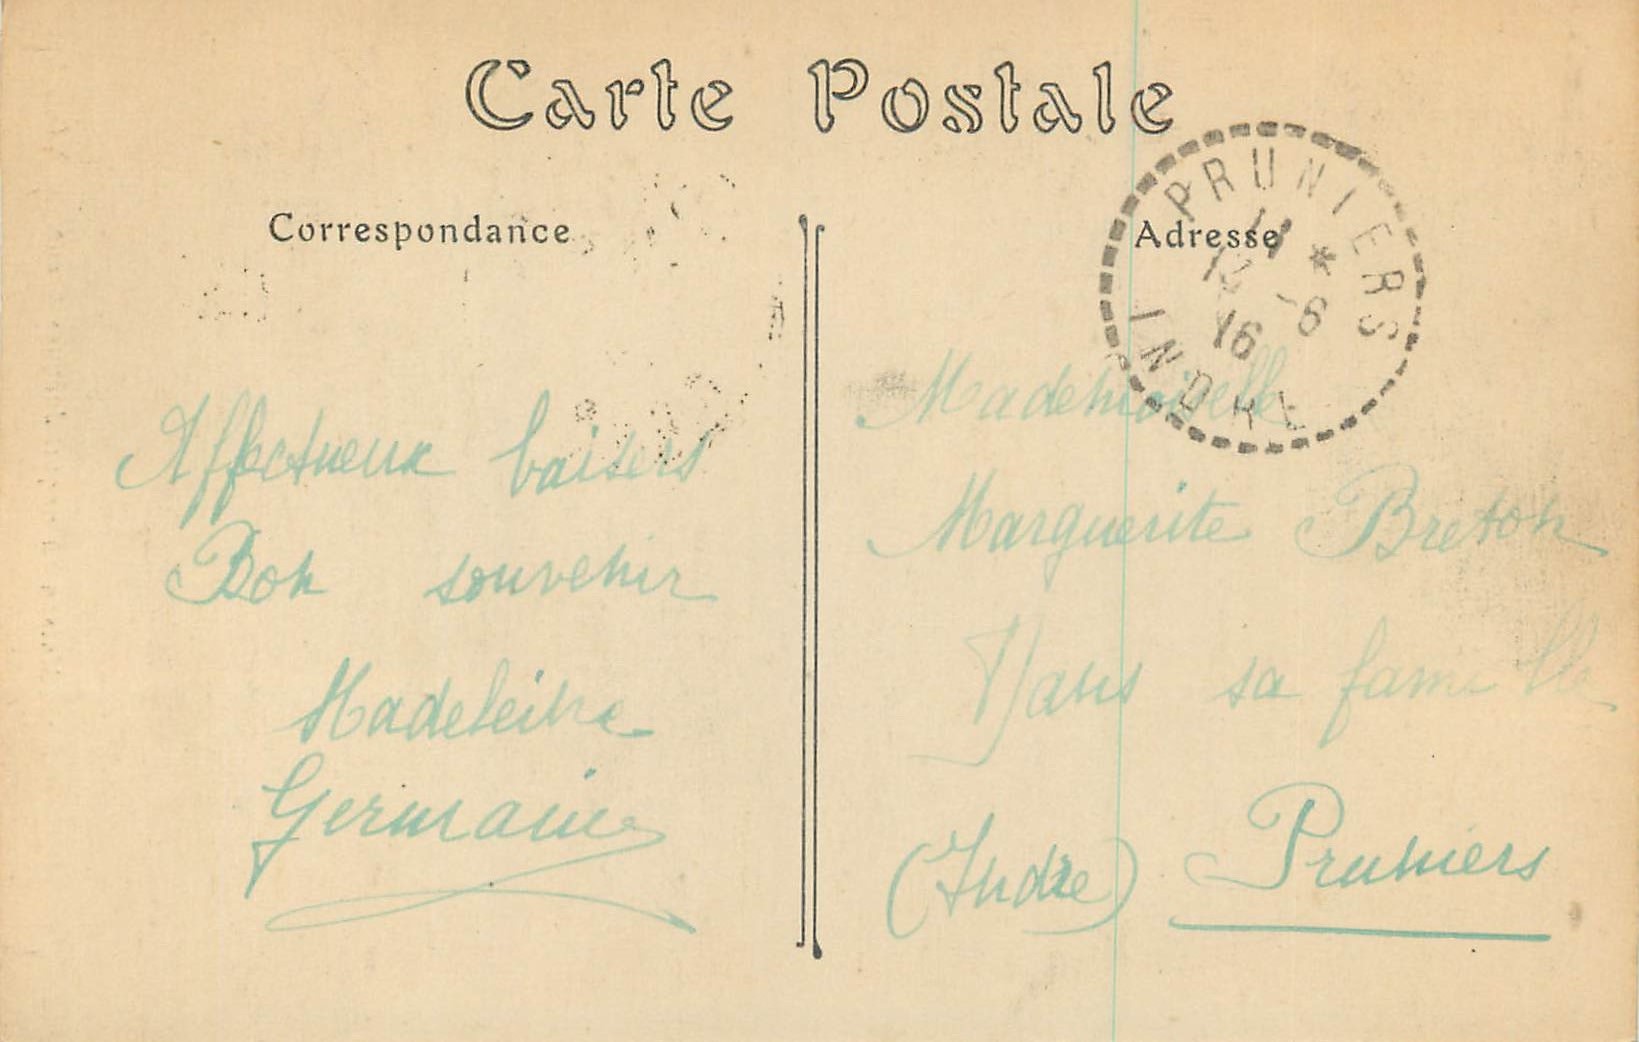 Carte Postale
Correspondance
Adresse
PRUNIERS
11 *
12 -6
16
INDRE
Affectueux baisers
Bon souvenir
Madeleine
Germaine
Mademoiselle
Marguerite Breton
Dans sa famille
(Indre) Pruniers